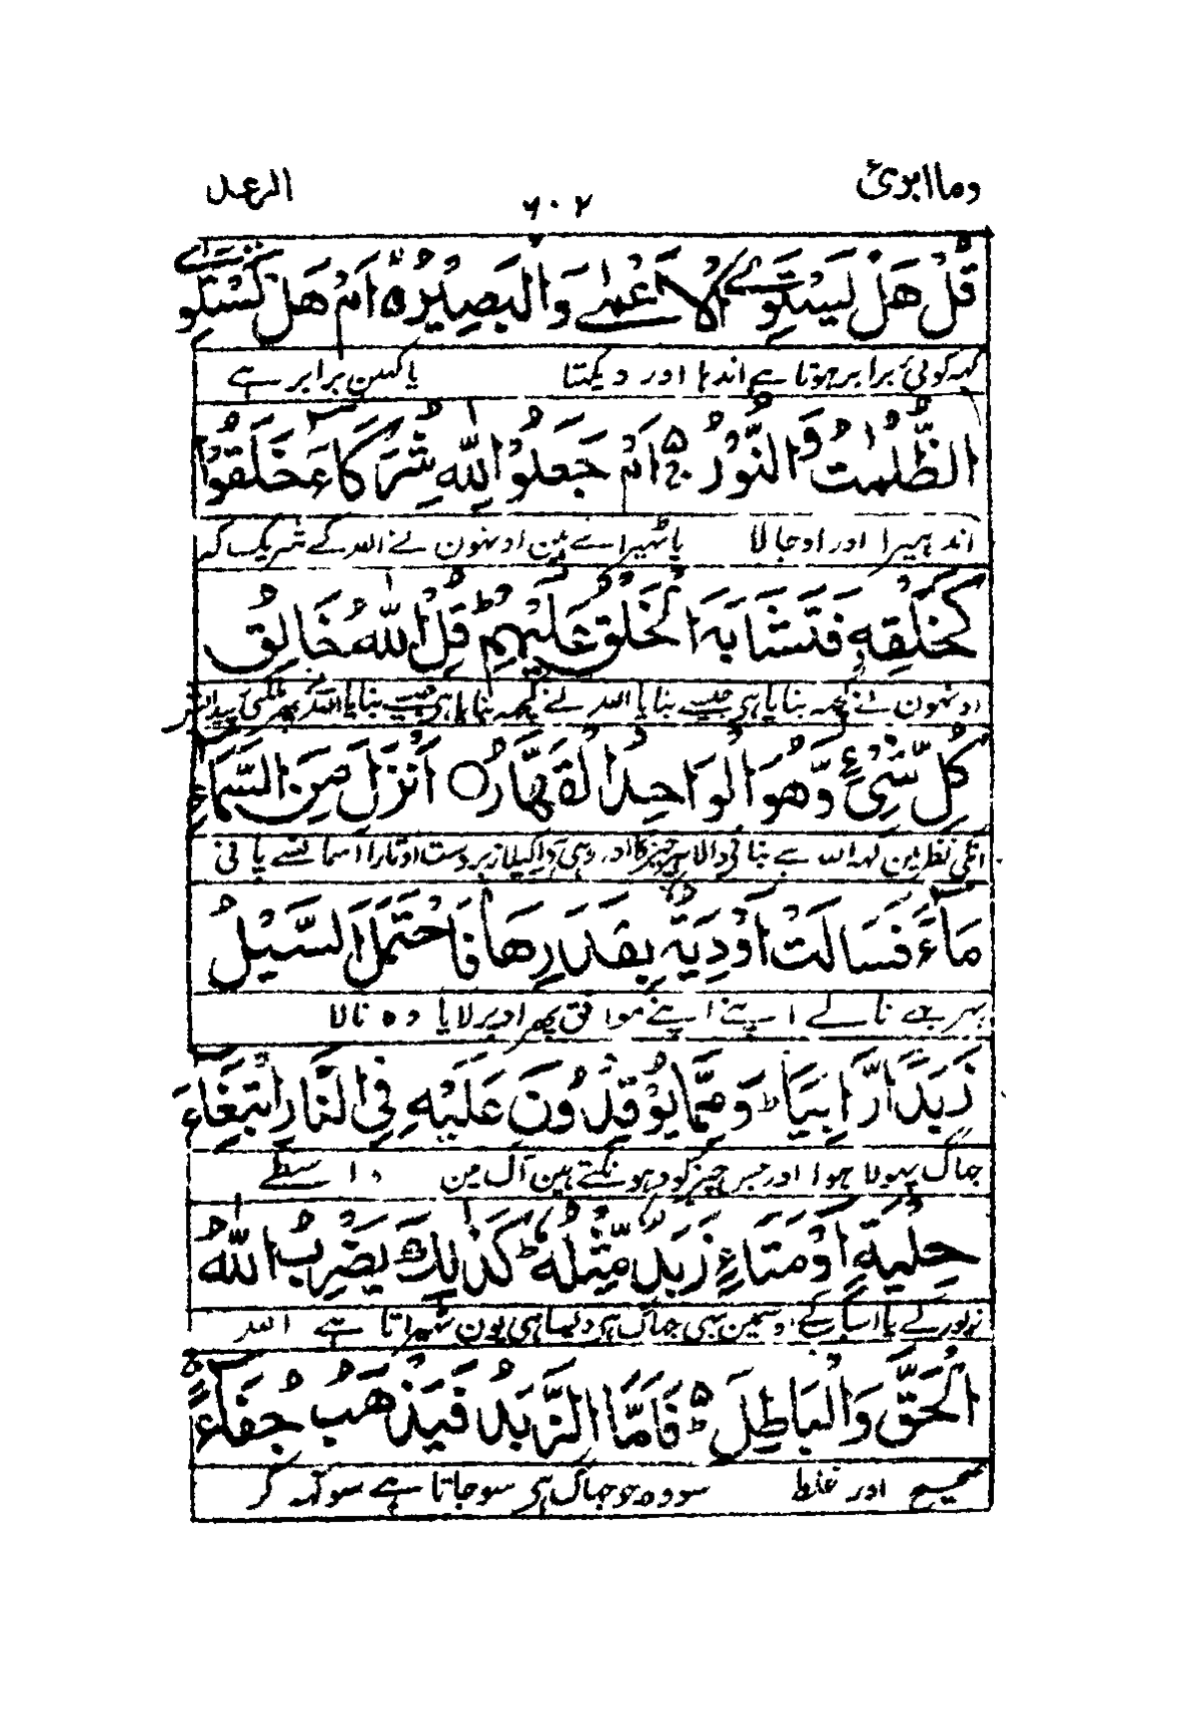 وما ابرئ
۶۰۲
الرعد
قُلْ هَلْ يَسْتَوِے الْاَعْمٰے وَالْبَصِيْرُ ۵ اَمْ هَلْ تَسْتَوِے
کہہ کوئی برابر ہوتا ہے اندہا اور دیکہتا یا کہین برابر ہے
الظُّلُمٰتُ وَالنُّوْرُ ۵ ج اَمْ جَعَلُوْا لِلّٰهِ شُرَكَآءَ خَلَقُوْا
اندہیرا اور اوجالا یا ٹہیرائے ہین اونہون نے اللہ کے شریک کہ
كَخَلْقِهٖ فَتَشَابَهَ الْخَلْقُ عَلَيْهِمْ ط قُلِ اللّٰهُ خَالِقُ
اونہون نے کچہہ بنایا ہی جیسے بنایا اللہ نے
كُلِّ شَيْءٍ وَّهُوَ الْوَاحِدُ الْقَهَّارُ ○ اَنْزَلَ مِنَ السَّمَآءِ
انکی نظر مین کہہ اللہ ہے بنانیوالا ہر چیز کا اور وہی ہے اکیلا زبردست اوتارا اسمان سے پانی
مَآءً فَسَالَتْ اَوْدِيَةٌۢ بِقَدَرِهَا فَاحْتَمَلَ السَّيْلُ
بہر بہے نالے اپنے اپنے موافق پھر اوپر لایا وہ نالا
زَبَدًا رَّابِيًا ط وَمِمَّا يُوْقِدُوْنَ عَلَيْهِ فِي النَّارِ ابْتِغَآءَ
جہاگ پہولا ہوا اور جس چیز کو دہونکتے ہین آگ مین واسطے
حِلْيَةٍ اَوْ مَتَاعٍ زَبَدٌ مِّثْلُهٗ ط كَذٰلِكَ يَضْرِبُ اللّٰهُ
زیور کے یا اسباب کے اوسمین بہی جہاگ ہے ویسا ہی یون ٹہیراتا ہے اللہ
الْحَقَّ وَالْبَاطِلَ ۵ ط فَاَمَّا الزَّبَدُ فَيَذْهَبُ جُفَآءً ج
صحیح اور غلط سو وہ جو جہاگ ہی سو جاتا ہے سوکہہ کر